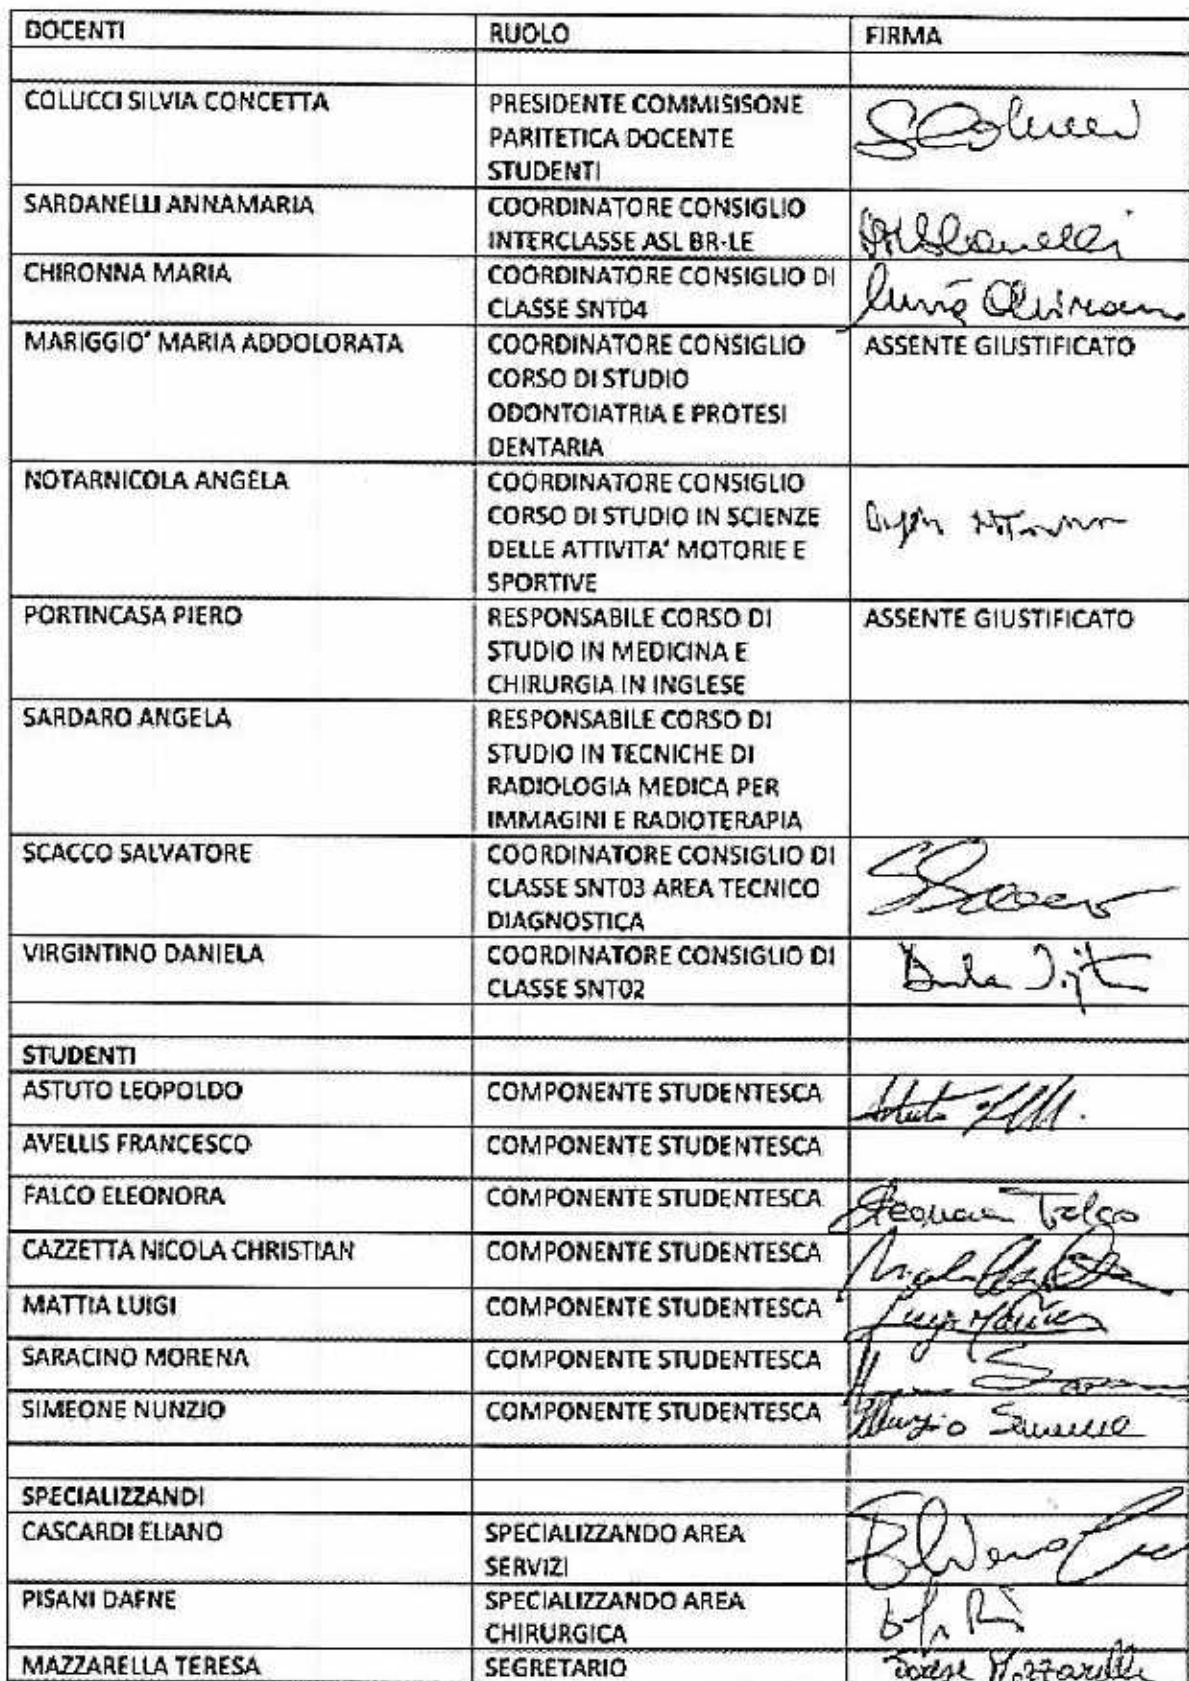 DOCENTI RUOLO FIRMA
COLUCCI SILVIA CONCETTA PRESIDENTE COMMISISONE
PARITETICA DOCENTE
STUDENTI
SColucci
SARDANELLI ANNAMARIA COORDINATORE CONSIGLIO
INTERCLASSE ASL BR-LE
CHIRONNA MARIA COORDINATORE CONSIGLIO DI
CLASSE SNT04
MARIGGIO' MARIA ADDOLORATA COORDINATORE CONSIGLIO ASSENTE GIUSTIFICATO
CORSO DI STUDIO
ODONTOIATRIA E PROTESI
DENTARIA
NOTARNICOLA ANGELA COORDINATORE CONSIGLIO
CORSO DI STUDIO IN SCIENZE
DELLE ATTIVITA' MOTORIE E
SPORTIVE
PORTINCASA PIERO RESPONSABILE CORSO DI ASSENTE GIUSTIFICATO
STUDIO IN MEDICINA E
CHIRURGIA IN INGLESE
SARDARO ANGELA RESPONSABILE CORSO DI
STUDIO IN TECNICHE DI
RADIOLOGIA MEDICA PER
IMMAGINI E RADIOTERAPIA
SCACCO SALVATORE COORDINATORE CONSIGLIO DI
CLASSE SNT03 AREA TECNICO
DIAGNOSTICA
VIRGINTINO DANIELA COORDINATORE CONSIGLIO DI
CLASSE SNT02
STUDENTI
ASTUTO LEOPOLDO COMPONENTE STUDENTESCA
AVELLIS FRANCESCO COMPONENTE STUDENTESCA
FALCO ELEONORA COMPONENTE STUDENTESCA Eleonora Falco
CAZZETTA NICOLA CHRISTIAN COMPONENTE STUDENTESCA
MATTIA LUIGI COMPONENTE STUDENTESCA Luigi Mattia
SARACINO MORENA COMPONENTE STUDENTESCA
SIMEONE NUNZIO COMPONENTE STUDENTESCA Nunzio Simeone
SPECIALIZZANDI
CASCARDI ELIANO SPECIALIZZANDO AREA
SERVIZI
PISANI DAFNE SPECIALIZZANDO AREA
CHIRURGICA
MAZZARELLA TERESA SEGRETARIO Teresa Mazzarella